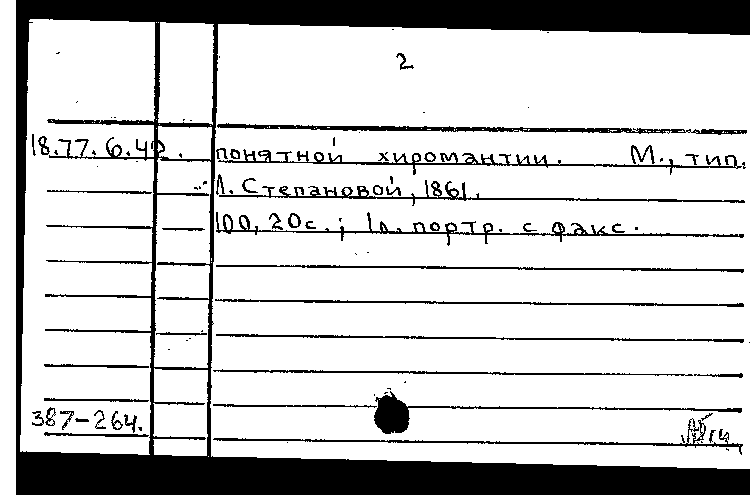 2
18.77.6.42. понятной хиромантии. М., тип.
Л. Степановой, 1861.
100, 20с.; 1л. портр. с факс.
387-264.